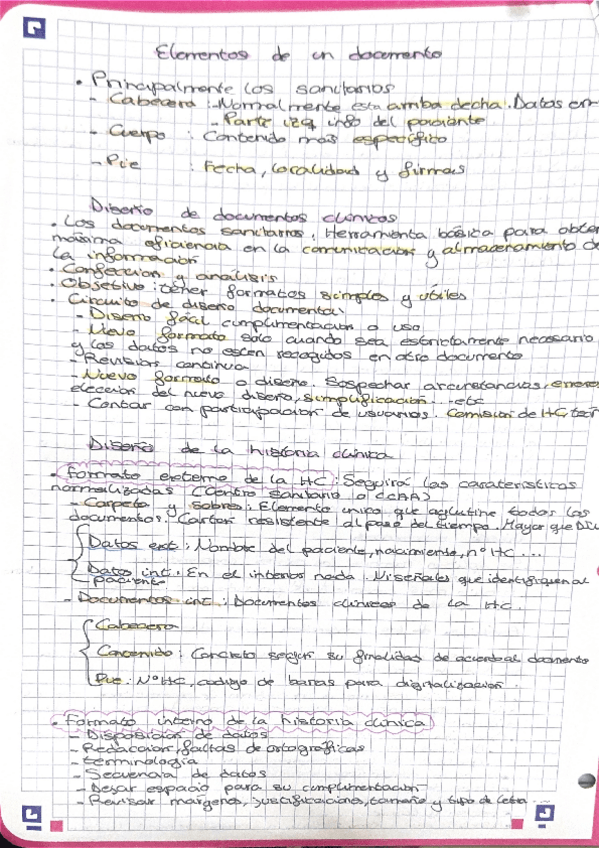 Elementos de un documento
• Principalmente los sanitarios
- Cabecera: - Normalmente esta arriba decha. Datos em
- Parte izq info del paciante
- Cuerpo : Contenido mas específico
- Pie : Fecha, localidad y firmas
Diseño de documentos clínicos
• Los documentos sanitarios, Herramienta básica para obten
máxima eficiencia en la comunicacion y almacenamiento de
la informacion
• Confeccion y analisis
• Objetivo: tener formatos simples y útiles
• Circuito de diseño documental
- Diseño fácil cumplimentacion o uso
- Nuevo formato solo cuando sea estrictamente necesario
y los datos no esten recogidos en otro documento
- Revision continua
- Nuevo formato o diseño. Sospechar circunstancias, errores
eleccion del nuevo diseño, simplificacion... etc
- Contar con participacion de usuarios. Comision de HC,
Diseño de la historia clínica
• Formato externo de la HC: Seguirá las caracteristicas
normalizadas (Centro sanitario o CCAA)
- Carpeta y sobres: Elemento unico que aglutine todos los
documentos. Carton resistente al paso del tiempo. Mayor que
Datos ext: Nombre del paciente, nacimiente, nº HC...
Datos int.. En el interior nada. Ni señales que identifiquen al
paciente
- Documentos int: Documentos clinicos de la HC.
Cabecera
Contenido: Concreto segun su finalidas de acuerdo al documento
Pie: Nº HC, codigo de barras para digitalizacion.
• Formato interno de la historia clínica
- Disposicion de datos
- Redaccion, faltas de ortograficas
- terminologia
- Secuencia de datos
- Dejar espacio para su cumplimentacion
- Revisar margenes, justificaciones, tamaño y tipo de letra...